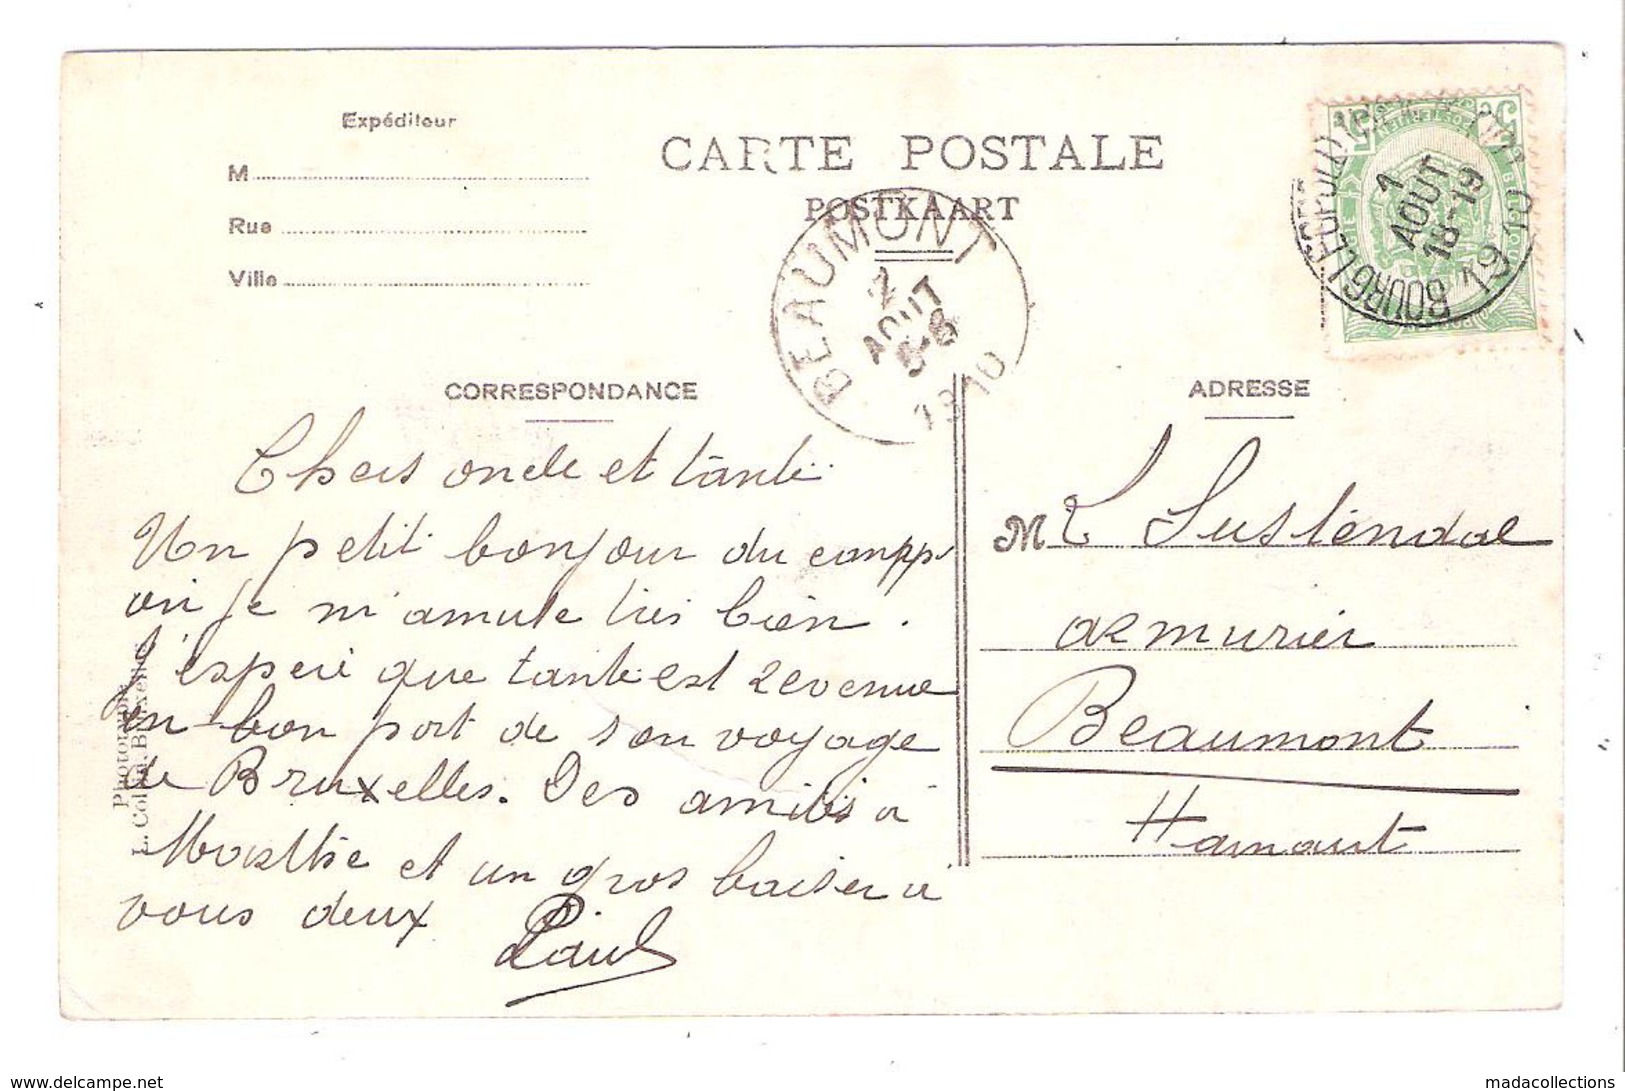 Expéditeur
M
Rue
Ville
CARTE POSTALE
POSTKAART
BEAUMONT
2
AOUT
5-6
1910
BOURG LEOPOLD
1
AOUT
18-19
1910
CORRESPONDANCE
ADRESSE
Chers oncle et tante
Un petit bonjour du camp
où je m'amuse très bien.
J'espère que tante est revenue
en bon port de son voyage
de Bruxelles. Des amitiés à
Marthe et un gros baiser à
vous deux
Paul
Mr L Sustendal
armurier
Beaumont
Hainaut
Phototypie
L. Collin, Bruxelles
www.delcampe.net
madacollections